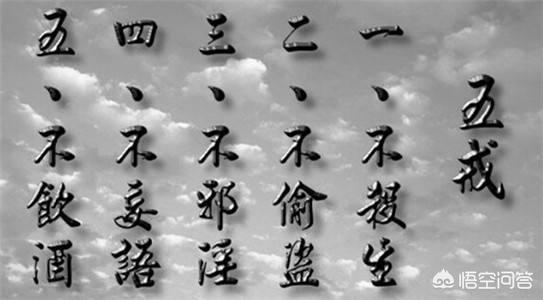 五戒
一、不殺生
二、不偷盜
三、不邪淫
四、不妄語
五、不飲酒
悟空问答